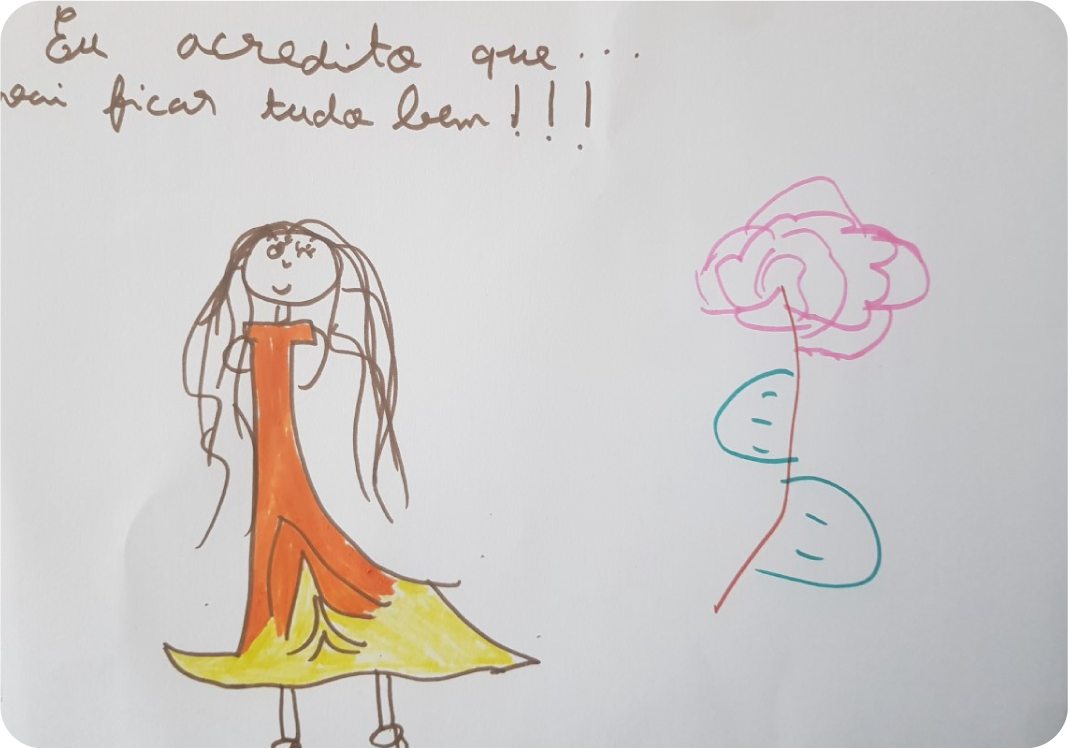 Eu acredito que...
vai ficar tudo bem!!!